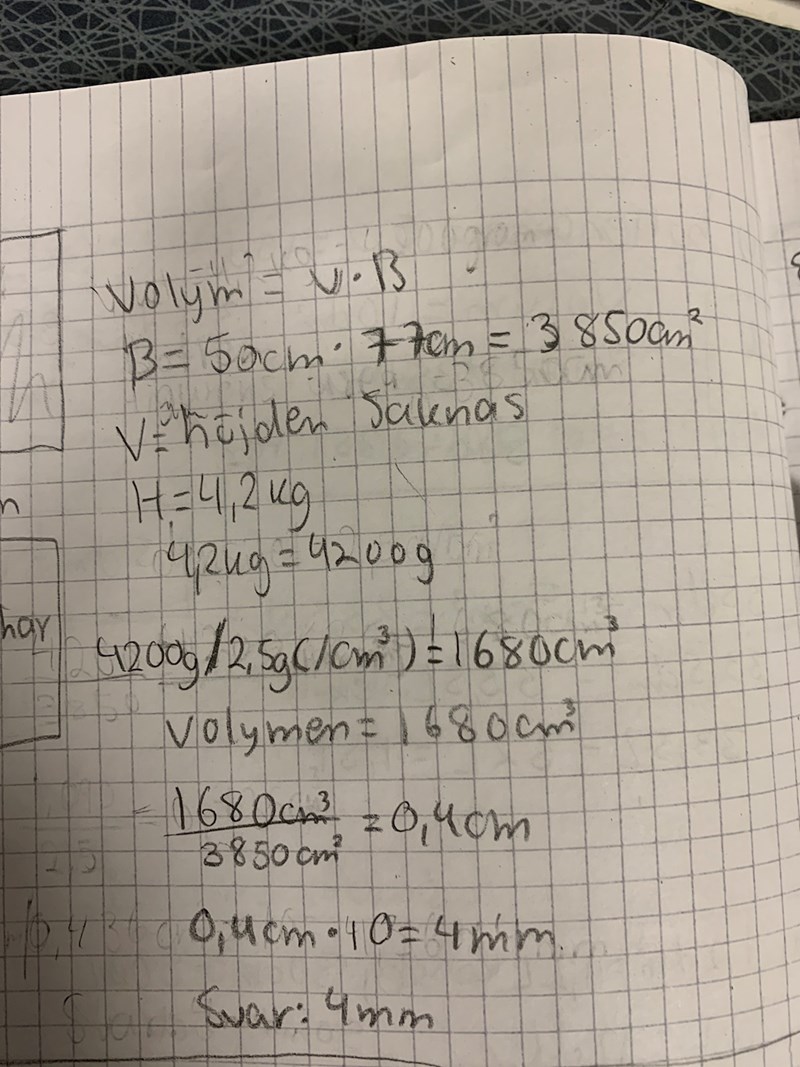 Volym = V · B
B = 50cm · 77cm = 3 850cm²
V = höjden saknas
H = 4,2 kg
4,2kg = 4200g
n
har
4200g/2,5g(/cm³) = 1680cm³
Volymen = 1680cm³
= 1680cm³
3850cm² = 0,4cm
0,4cm · 10 = 4mm.
Svar: 4mm